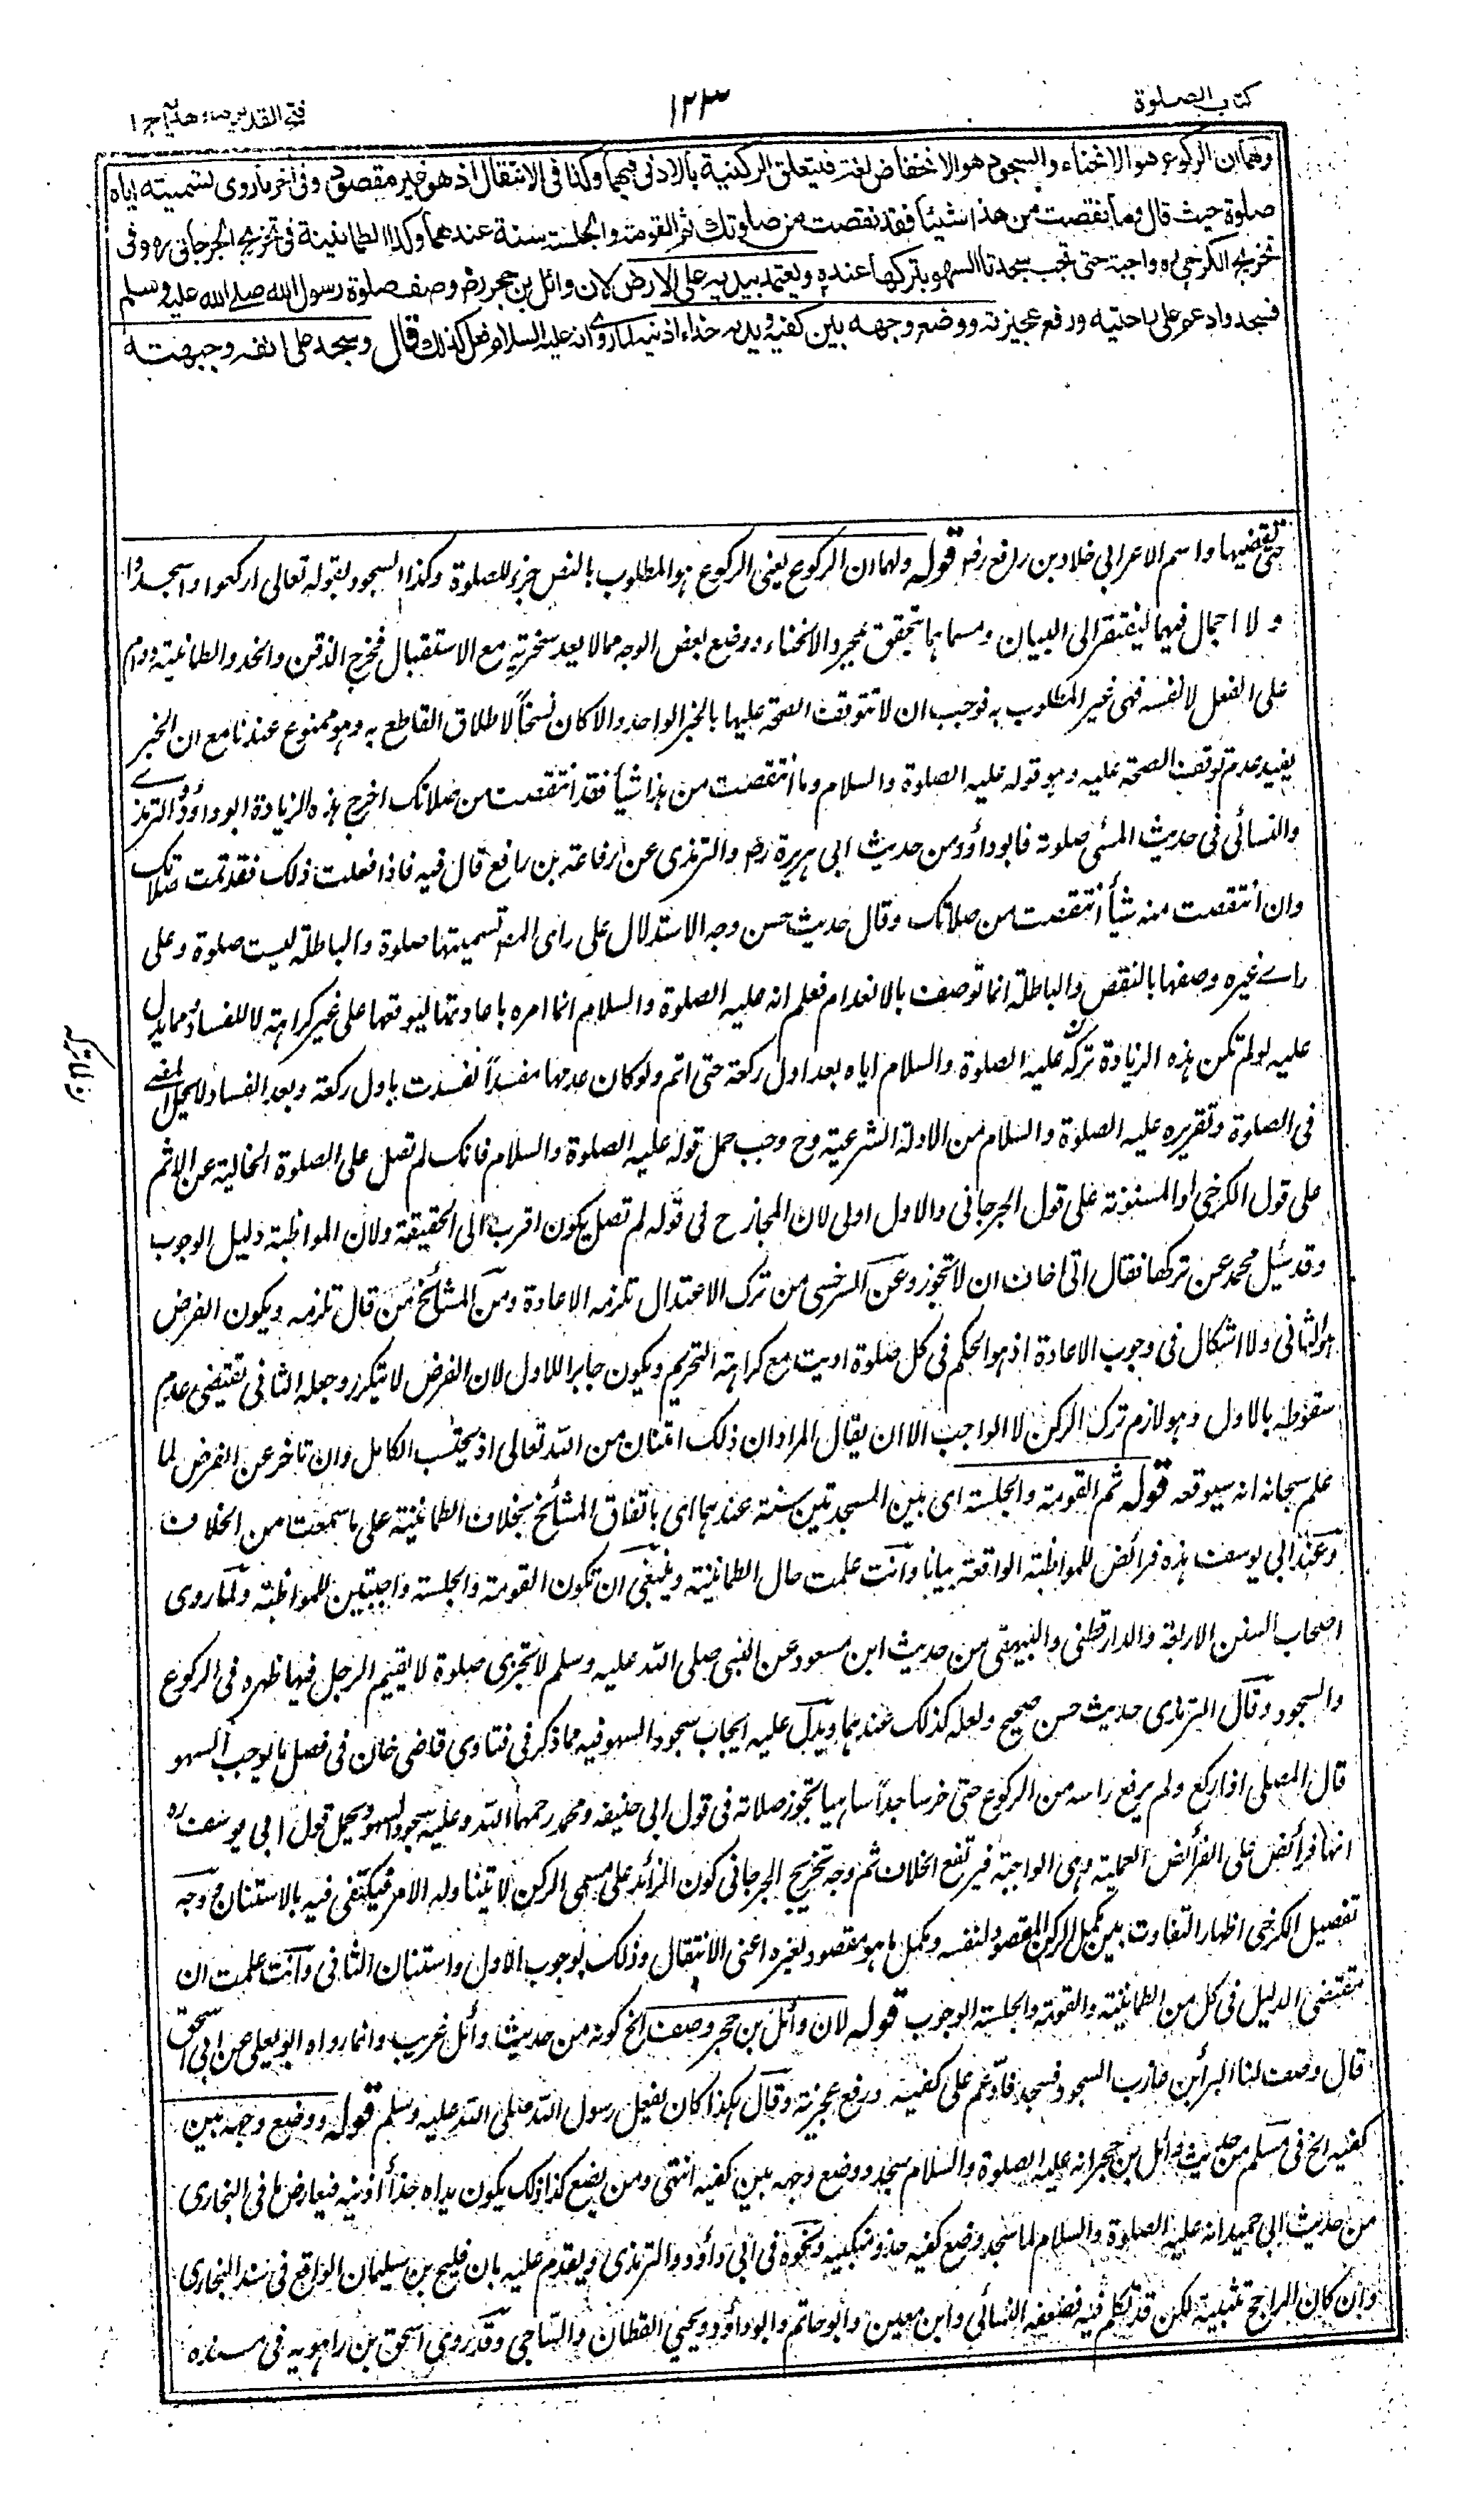 كتاب الصلوة
١٢٣
فتح القدير مع هداية ج ١
ولهما ان الركوع هو الانحناء والسجود هو الانخفاض لغة فتتعلق الركنية بالادنى فيهما وكذا فى الانتقال اذ هو غير مقصود وفى آخر ما روى تسميته اياه
صلوة حيث قال وما نقصت من هذا شيئا فقد نقصت من صلوتك ثم القومة والجلسة سنة عندهما وكذا الطمانينة فى تخريج الجرجانى ره وفى
تخريج الكرخى ره واجبة حتى تجب سجدتا السهو بتركها عنده ويعتمد بيديه على الارض لان وائل بن حجر رض وصف صلوة رسول الله صلے الله عليه وسلم
فسجد وادعم على راحتيه ورفع عجيزته ووضع وجهه بين كفيه ويديه حذاء اذنيه لما روى انه عليه السلام فعل كذلك قال وسجد على انفه وجبهته
حتى تقضيها واسم الاعرابى خلاد بن رافع رض قوله ولهما ان الركوع يعنى الركوع هو المطلوب بالنص جزء للصلوة وكذا السجود بقوله تعالى اركعوا واسجدوا
ولا اجمال فيهما ليفتقر الى البيان ومسماهما يتحقق بمجرد الانحناء ووضع بعض الوجه مما لا يعد سخرية مع الاستقبال فخرج الذقن والخد والطمانينة دوام
على الفعل لا نفسه فهى غير المطلوب به فوجب ان لا تتوقف الصحة عليها بالخبر الواحد والا كان نسخاً لاطلاق القاطع به وهو ممنوع عندنا مع ان الخبر
يفيد عدم توقف الصحة عليه وهو قوله عليه الصلوة والسلام وما انتقصت من هذا شيأ فقد انتقصت من صلاتك اخرج هذه الزيادة ابو داؤد والترمذے
والنسائى فى حديث المسئى صلوته فابو داؤد من حديث ابى هريرة رض والترمذى عن رفاعة بن رافع قال فيه فاذا فعلت ذلك فقد تمت صلاتك
وان انتقصت منه شيأ انتقصت من صلاتك وقال حديث حسن وجه الاستدلال على راى المص تسميتها صلوة والباطلة ليست صلوة وعلى
راے غيره وصفها بالنقص والباطلة انما توصف بالانعدام فعلم انه عليه الصلوة والسلام انما امره باعادتها ليوقعها على غير كراهة لا للفساد ومما يدل
عليه لو لم تكن هذه الزيادة تركه عليه الصلوة والسلام اياه بعد اول ركعة حتى اتم ولو كان عدمها مفسداً لفسدت باول ركعة وبعد الفساد لا يحل المضے
فى الصلوة وتقريره عليه الصلوة والسلام من الادلة الشرعية وح وجب حمل قوله عليه الصلوة والسلام فانك لم تصل على الصلوة الخالية عن الاثم
على قول الكرخى او المسنونة على قول الجرجانى والاول اولى لان المجاز ح فى قوله لم تصل يكون اقرب الى الحقيقة ولان المواظبة دليل الوجوب
وقد سئل محمد عن تركها فقال انى اخاف ان لا تجوز وعن السرخسى من ترك الاعتدال تلزمه الاعادة ومن المشائخ من قال تلزمه ويكون الفرض
هو الثانى ولا اشكال فى وجوب الاعادة اذ هو الحكم فى كل صلوة اديت مع كراهة التحريم ويكون جابرا للاول لان الفرض لا يتكرر وجعله الثانى يقتضى عدم
سقوطه بالاول وهو لازم ترك الركن لا الواجب الا ان يقال المراد ان ذلك امتنان من الله تعالى اذ يحتسب الكامل وان تاخر عن الفرض لما
علم سبحانه انه سيوقعه قوله ثم القومة والجلسة اى بين السجدتين سنة عندهما اى باتفاق المشائخ بخلاف الطمانينة على ما سمعت من الخلاف
وعند ابى يوسف هذه فرائض للمواظبة الواقعة بيانا وانت علمت حال الطمانينة وينبغى ان تكون القومة والجلسة واجبتين للمواظبة ولما روى
اصحاب السنن الاربعة والدارقطنى والبيهقى من حديث ابن مسعود عن النبى صلى الله عليه وسلم لا تجزى صلوة لا يقيم الرجل فيها ظهره فى الركوع
والسجود وقال الترمذى حديث حسن صحيح ولعله كذلك عندهما ويدل عليه ايجاب سجود السهو فيه مما ذكر فى فتاوى قاضى خان فى فصل ما يوجب السهو
قال المصلى اذا ركع ولم يرفع راسه من الركوع حتى خر ساجداً ساهيا تجوز صلاته فى قول ابى حنيفه ومحمد رحمهما الله وعليه سجود السهو ويحمل قول ابى يوسف ره
انها فرائض على الفرائض العملية وهى الواجبة فيرتفع الخلاف ثم وجه تخريج الجرجانى كون الزائد على مسمى الركن لا يتناوله الامر فيكتفى فيه بالاستنان ووجه
تفصيل الكرخى اظهار التفاوت بين مكمل الركن المقصود لنفسه ومكمل ما هو مقصود لغيره اعنى الانتقال وذلك بوجوب الاول واستنان الثانى وانت علمت ان
مقتضى الدليل فى كل من الطمانينة والقومة والجلسة الوجوب قوله لان وائل بن حجر وصف الخ كونه من حديث وائل غريب وانما رواه ابو يعلى عن ابى اسحق
قال وصف لنا البراء بن عازب السجود فسجد فادعم على كفيه ورفع عجيزته وقال هكذا كان يفعل رسول الله صلى الله عليه وسلم قوله ووضع وجهه بين
كفيه الخ فى مسلم من حديث وائل بن حجر انه عليه الصلوة والسلام سجد ووضع وجهه بين كفيه انتهى ومن يضع كذلك يكون يداه حذاء اذنيه فيعارض ما فى البخارى
من حديث ابى حميد انه عليه الصلوة والسلام لما سجد وضع كفيه حذو منكبيه ونحوه فى ابى داؤد والترمذى ويقدم عليه بان فليح بن سليمان الواقع فى سند البخارى
وان كان الراجح تثبيته لكن قد تكلم فيه فضعفه النسائى وابن معين وابو حاتم وابو داؤد ويحيى القطان والساجى وقد روى اسحق بن راهويه فى مسنده